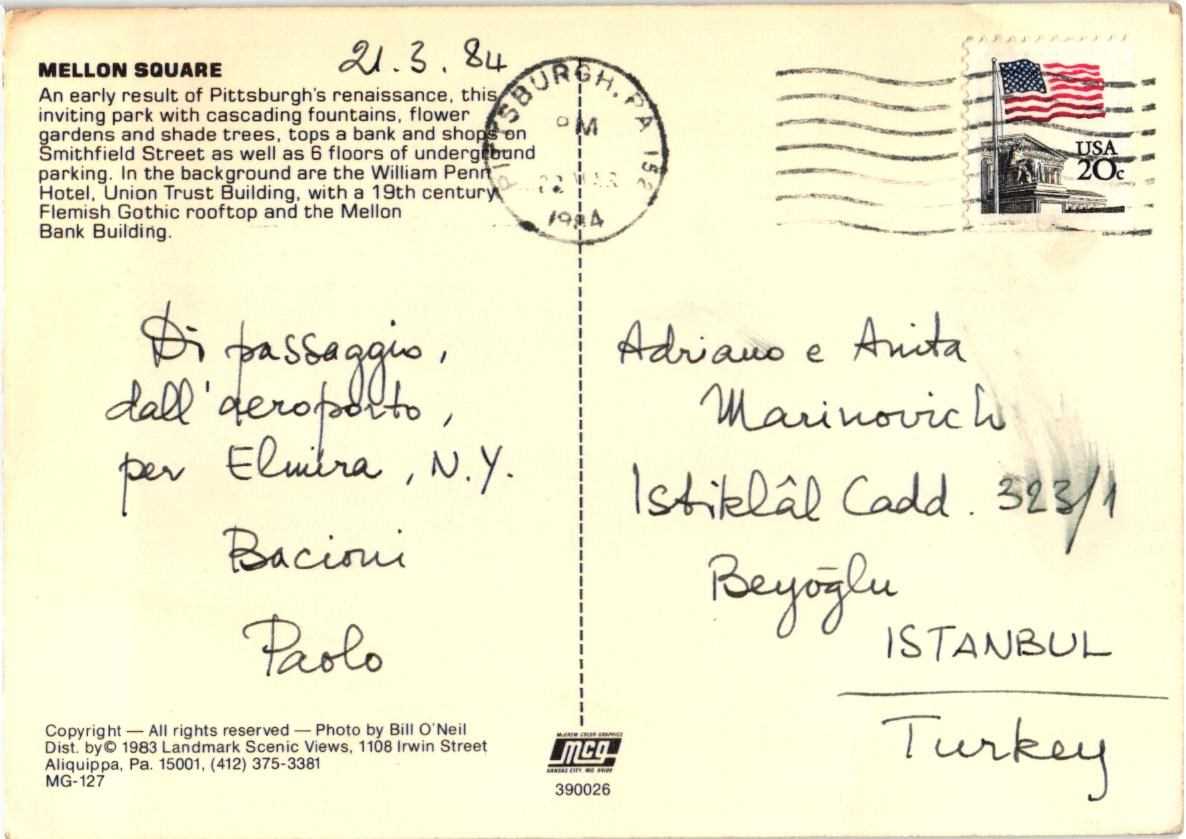 21.3.84
MELLON SQUARE
An early result of Pittsburgh's renaissance, this
inviting park with cascading fountains, flower
gardens and shade trees, tops a bank and shops on
Smithfield Street as well as 6 floors of underground
parking. In the background are the William Penn
Hotel, Union Trust Building, with a 19th century
Flemish Gothic rooftop and the Mellon
Bank Building.
PITTSBURGH, PA 152
PM
22 MAR
1984
USA
20c
Di passaggio,
dall'aeroporto,
per Elmira, N.Y.
Bacioni
Paolo
Adriano e Anita
Marinovich
Istiklâl Cadd. 323/1
Beyōglu
ISTANBUL
Turkey
Copyright — All rights reserved — Photo by Bill O'Neil
Dist. by © 1983 Landmark Scenic Views, 1108 Irwin Street
Aliquippa, Pa. 15001, (412) 375-3381
MG-127
McGREW COLOR GRAPHICS
mcg
KANSAS CITY, MO. 64108
390026